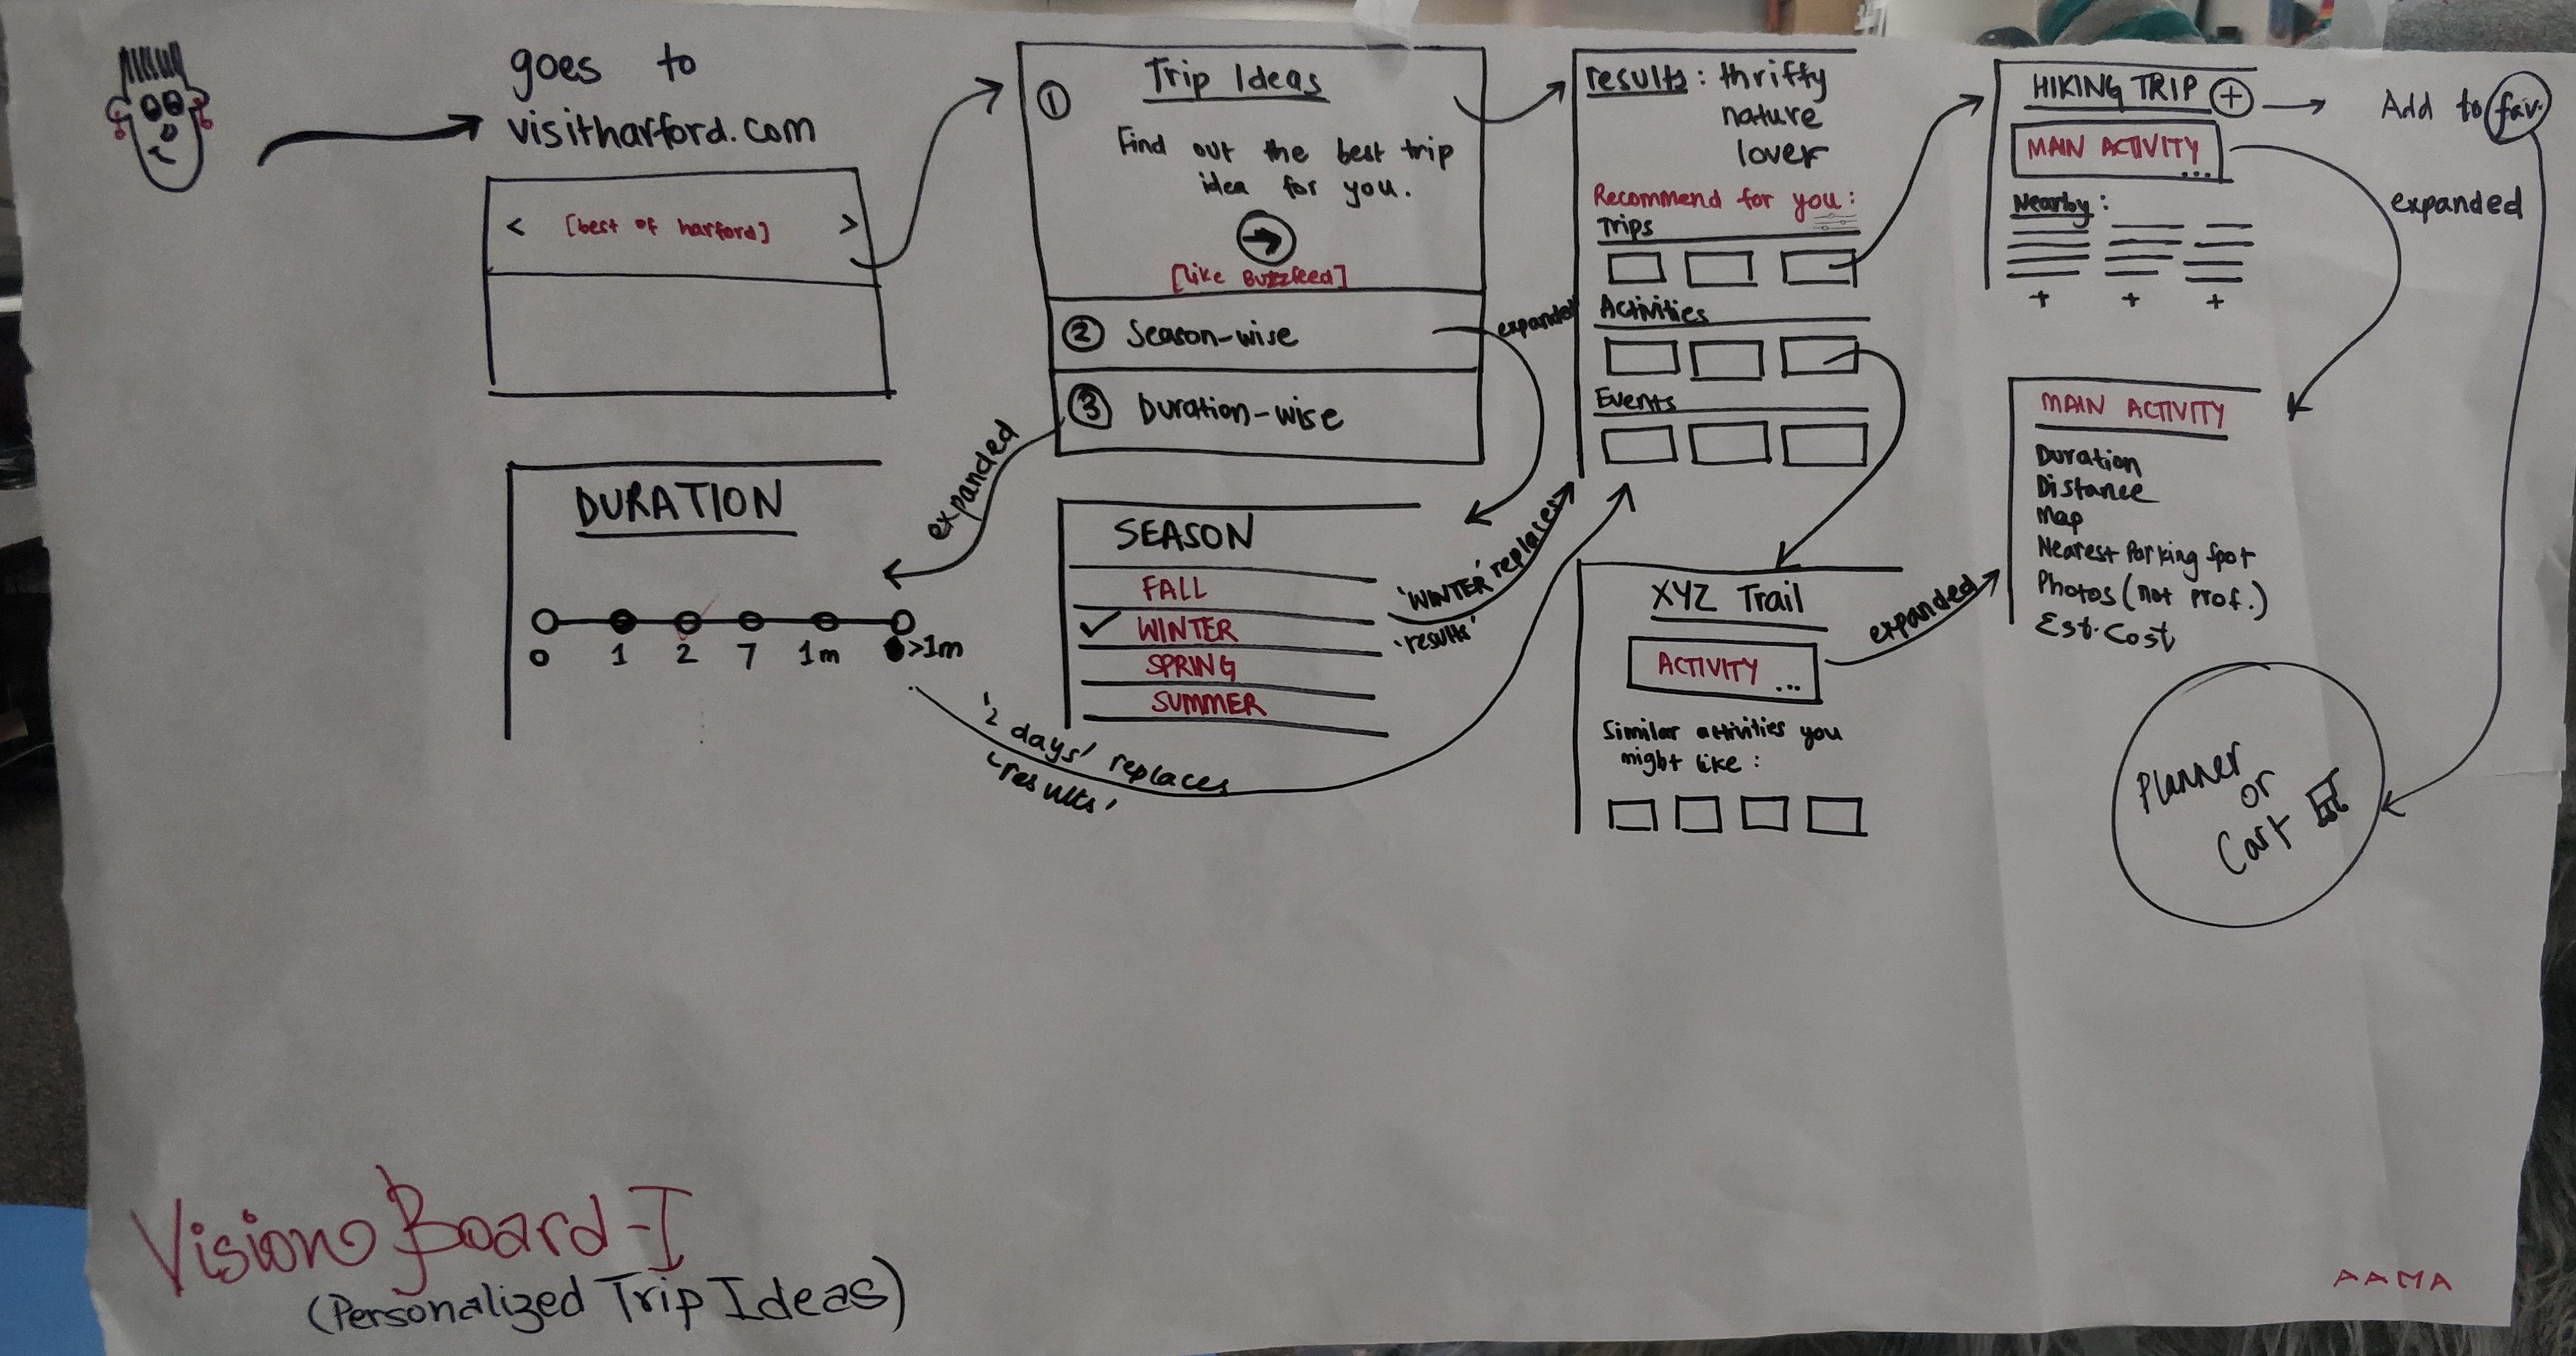 goes to
visitharford.com
< [best of harford] >
① Trip Ideas
Find out the best trip
idea for you.
[like Buzzfeed]
② Season-wise
③ Duration-wise
expanded
expanded
DURATION
0 1 2 7 1m >1m
'2 days' replaces
'results'
SEASON
FALL
✓ WINTER
SPRING
SUMMER
'WINTER' replaces
'results'
results: thrifty
nature
lover
Recommend for you:
Trips
Activities
Events
XYZ Trail
ACTIVITY ...
Similar activities you
might like:
expanded
HIKING TRIP +
MAIN ACTIVITY
...
Nearby:
+ + +
Add to fav.
expanded
MAIN ACTIVITY
Duration
Distance
Map
Nearest Parking Spot
Photos (not prof.)
Est. Cost
Planner
or
Cart
Vision Board-I
(Personalized Trip Ideas)
AAMA